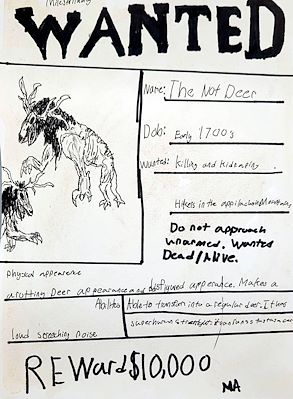 WANTED
Name: The Not Deer
Dob: Early 1700s
Wanted: Killing and kidnapping
Hikers in the
Do not approach
unarmed. Wanted
Dead/Alive.
Physical appearance
a rutting Deer appearance and disfigured apperance. Makes a
Abilities Able to transform into a regular deer. It has
superhuman strength
loud screeching noise
REWard $10,000
MA